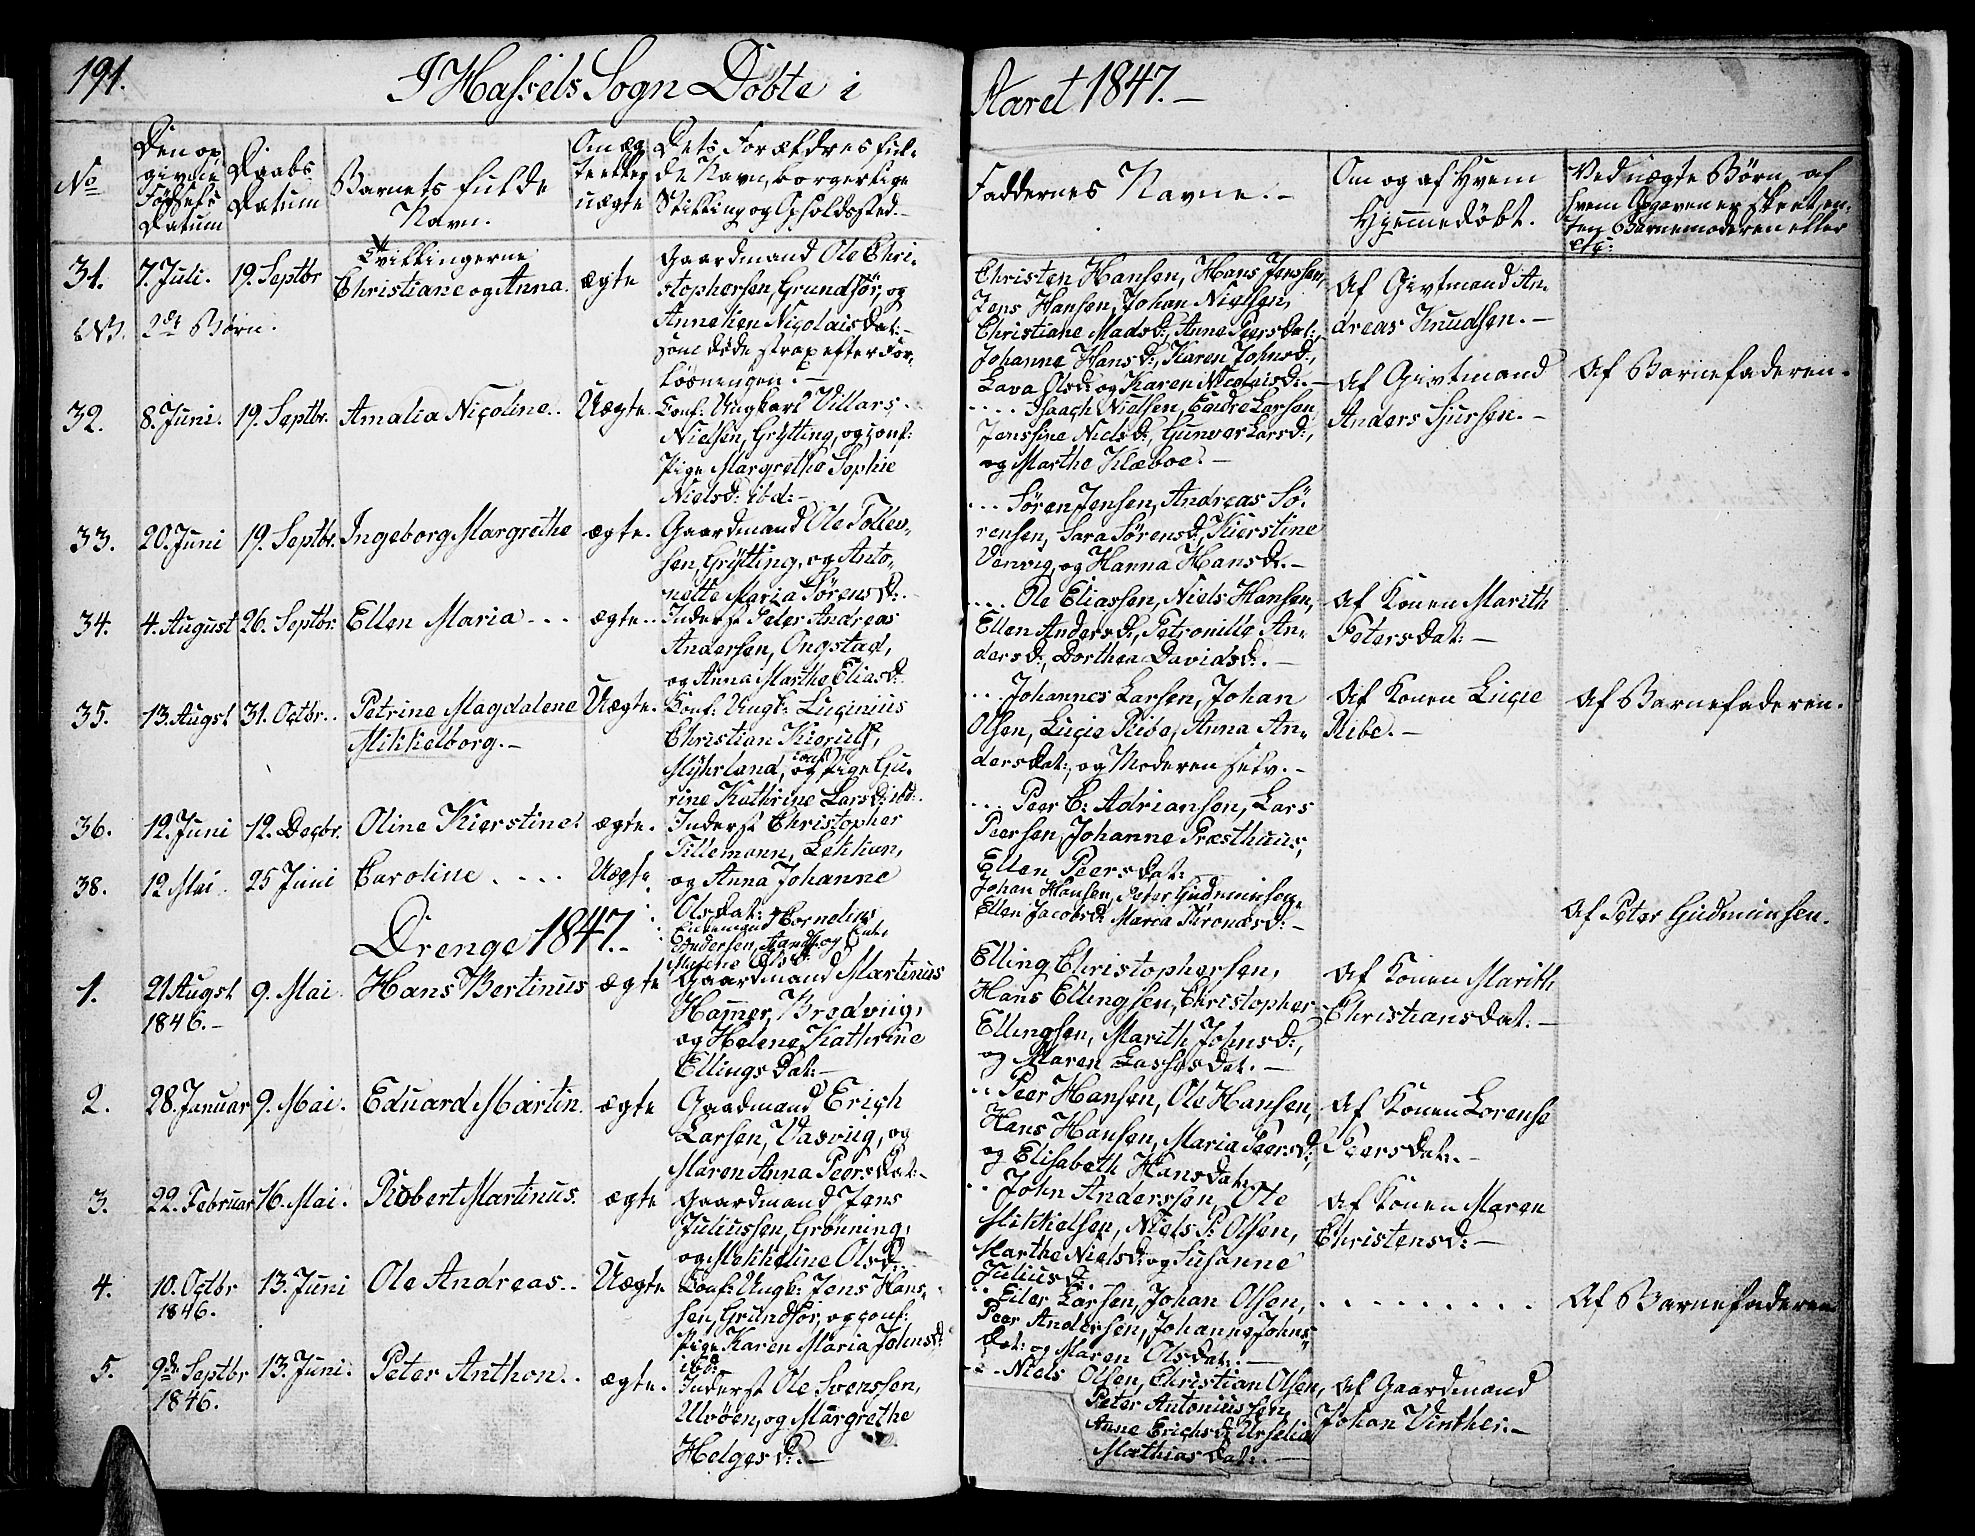 191.
I Hassels Sogn Döbte i
Aaret 1847.–
No
Den op
givne
Födsels
Datum
Daabs
Datum
Barnets fulde
Navn.
Om æg
te eller
uægte
Dets Forældres ful-
de Navn, borgerlige
Stilling og Opholdssted.–
Faddernes Navne.–
Om og af Hvem
Hjemmedöbt.
Ved uægte Börn, af
hvem Opgaven er skeet, en-
ten Barnemoderen eller
etc:
31.
7. Juli.
19. Septbr
Tvillingerne
Christiane og Anna.
ægte
NB. 2de Börn.
Gaardmand Ole Chri-
stophersen, Grundför, og
Anneken Nicolaisdat:–
som döde strax efter For-
lösningen.–
Christen Hansen, Hans Jenssen,
Jens Hansen, Johan Nielsen,
Christiane Madsd:, Anne Peersdat:,
Johanne Hansd:, Karen Johnsd:,
Lava Olsd: og Karen Nicolaisd:–
Af Givtmand An-
dreas Knudsen.–
32.
8. Juni.
19. Septbr.
Amalia Nicoline.
Uægte.
Conf: Ungkarl Villars
Nielsen, Grytting, og conf:
Pige Margrethe Sophie
Nielsd: ibd:–
.... Isaach Nielsen, Endre Larsen,
Jensine Nielsd:, Gunver Larsd:,
og Marthe Klæboe.–
Af Givtmand
Anders Sjursen.–
Af Barnefaderen.
33.
20. Juni
19. Septbr.
Ingeborg Margrethe
ægte.
Gaardmand Ole Tollev-
sen, Grytting, og Anto-
nette Maria Sörensd:.
... Sören Jensen, Andreas Sö-
rensen, Sara Sörensd:, Kierstine
Venvig, og Hanna Hansd:–
34.
4. August
26. Septbr.
Ellen Maria...
ægte..
Inderst Peter Andreas
Andersen, Ongstad,
og Anna Marthe Eliasd:
.... Ole Eliassen, Niels Hansen,
Ellen Andersd:, Petronille An-
dersd:, Dorthea Davidsd:.–
Af Konen Marith
Petersdat:–
35.
13. Augst
31. Octbr..
Petrine Magdalene
Mikkelborg.–
Uægte.
Conf: Ungk: Lucinius
Christian Kierulf,
Myhrland, og conf: Pige Gu-
rine Kathrine Larsd: ibd:.
... Johannes Larsen, Johan
Olsen, Lucie Ribe, Anna An-
dersdat:, og Moderen selv.–
Af Konen Lucie
Ribe.–
Af Barnefaderen.
36.
12. Juni
12. Decbr.
Oline Kierstine.
ægte.
Inderst Christopher
Tillemann, Lekkun,
og Anna Johanne
Olsdat:
... Peer C: Adriansen, Lars
Peersen, Johanne Præsthuus,
Ellen Peersdat:
38.
12 Mai.
25 Juni
Caroline....
Uægte
Enkemand Cornelius
Endersen, Sand, og Enke
Malene Olsd:
Johan Hansen, Peter Gudmunsen,
Ellen Jacobsd: Maria Thronæsd:–
Af Peter Gudmunsen.
Drenge 1847.–
1.
21 Augst
1846.–
9. Mai.
Hans Bertinus
ægte
Gaardmand Martinus
Hammer, Bredviig,
og Helene Kathrine
Ellingsdat:–
Elling Christophersen,
Hans Ellingsen, Christopher
Ellingsen, Marith Johnsd:,
og Maren Lassesdat:.–
Af Konen Marith
Christiansdat:–
2.
28. Januar
9. Mai.
Eduard Martin.
ægte
Gaadmand Erich
Larsen, Vasviig, og
Maren Anna Peersdat:–
.. Peer Hansen, Ole Hansen,
Hans Hansen, Maria Peersd:,
og Elisabeth Hansdat:.
Af Konen Lorense
Peersdat:.–
3.
22. Februar
16. Mai.
Robert Martinus.
ægte
Gaardmand Jens
Juliussen, Gröning,
og Mekkeline Olsd:–
.. John Anderssen, Ole
Mikkelsen, Niels P: Olsen,
Marthe Nielsd: og Susanne
Juliusd:.
Af Konen Maren
Christensd:–
4.
10. Octbr
1846.
13. Juni
Ole Andreas..
Uægte
Conf: Ungk: Jens Han-
sen, Grundför, og conf:
Pige Karen Maria Johnsd:
ibd:
.. Eiler Larsen, Johan Olsen,
Peer Andersen, Johanne Johns-
dat: og Maren Olsdat:.–
.........
Af Barnefaderen
5.
9de Septbr
1846.
13. Juni.
Peter Anthon..
ægte.
Inderst Ole Svenssen,
Ulvöen, og Margrethe
Helgesd:.–
.. Niels Olsen, Christian Olsen,
Peter Antoniussen,
Anne Erichsd: Urselia
Mathiasdat:.–
Af Gaardmand
Johan Vinther.–